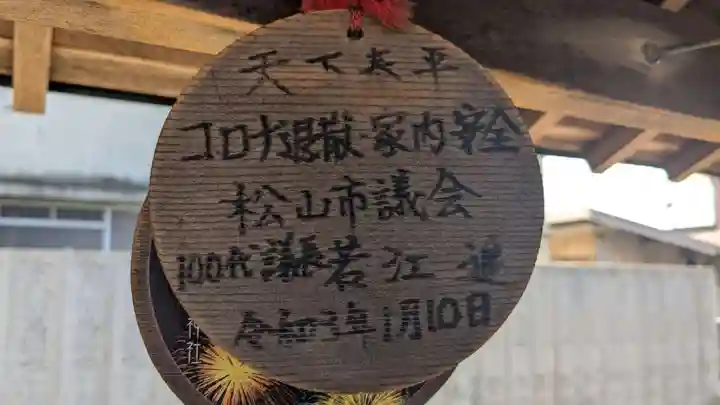 天下泰平
コロナ退散家内安全
松山市議会
100代議長若江進
令和3年1月10日
神社